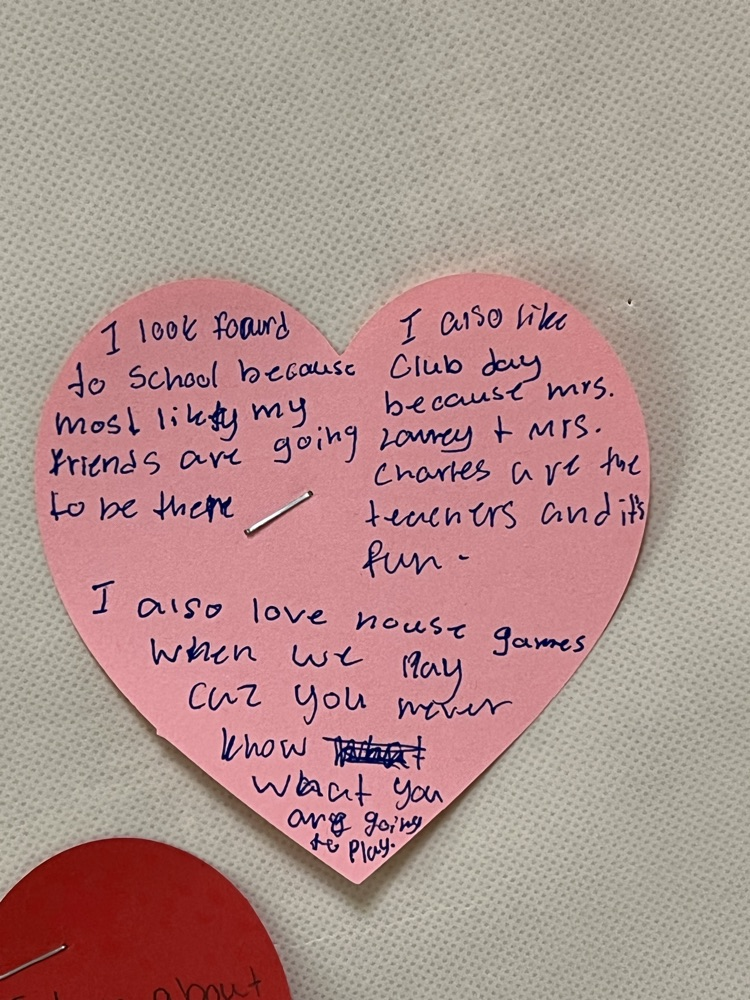 I look foward
to school because
most likely my
friends are going
to be there
I also like
Club day
because mrs.
+ mrs.
Charles are the
teachers and it's
fun.
I also love house games
when we play
cuz you never
know
what you
are going
to play.
about